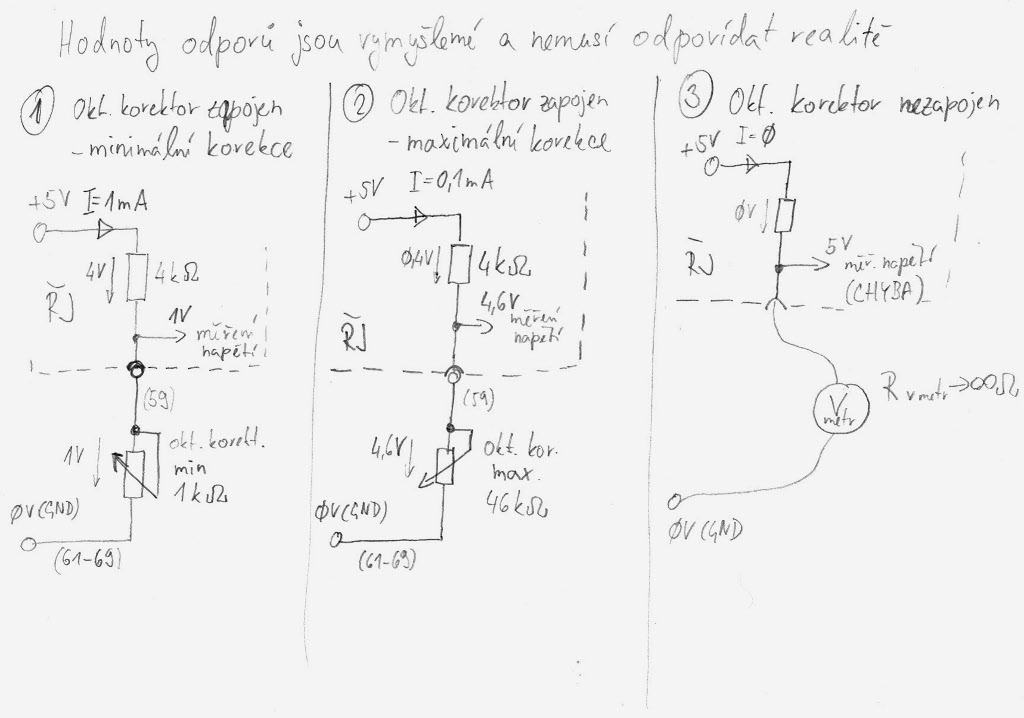 Hodnoty odporů jsou vymyšlené a nemusí odpovídat realitě
1 Okt. korektor zapojen
- minimální korekce
+5V I=1mA
4V 4kΩ
ŘJ
1V
měření
napětí
(59)
1V
okt. korekt.
min
1kΩ
ØV(GND)
(61-69)
2 Okt. korektor zapojen
- maximální korekce
+5V I=0,1mA
Ø,4V 4kΩ
4,6V
ŘJ
měření
napětí
(59)
4,6V
Okt. kor.
max.
46kΩ
ØV(GND)
(61-69)
3 Okt. korektor nezapojen
+5V I=Ø
ØV
5V
ŘJ
měř. napětí
(CHYBA)
V
metr
R vmetr→∞Ω
ØV(GND